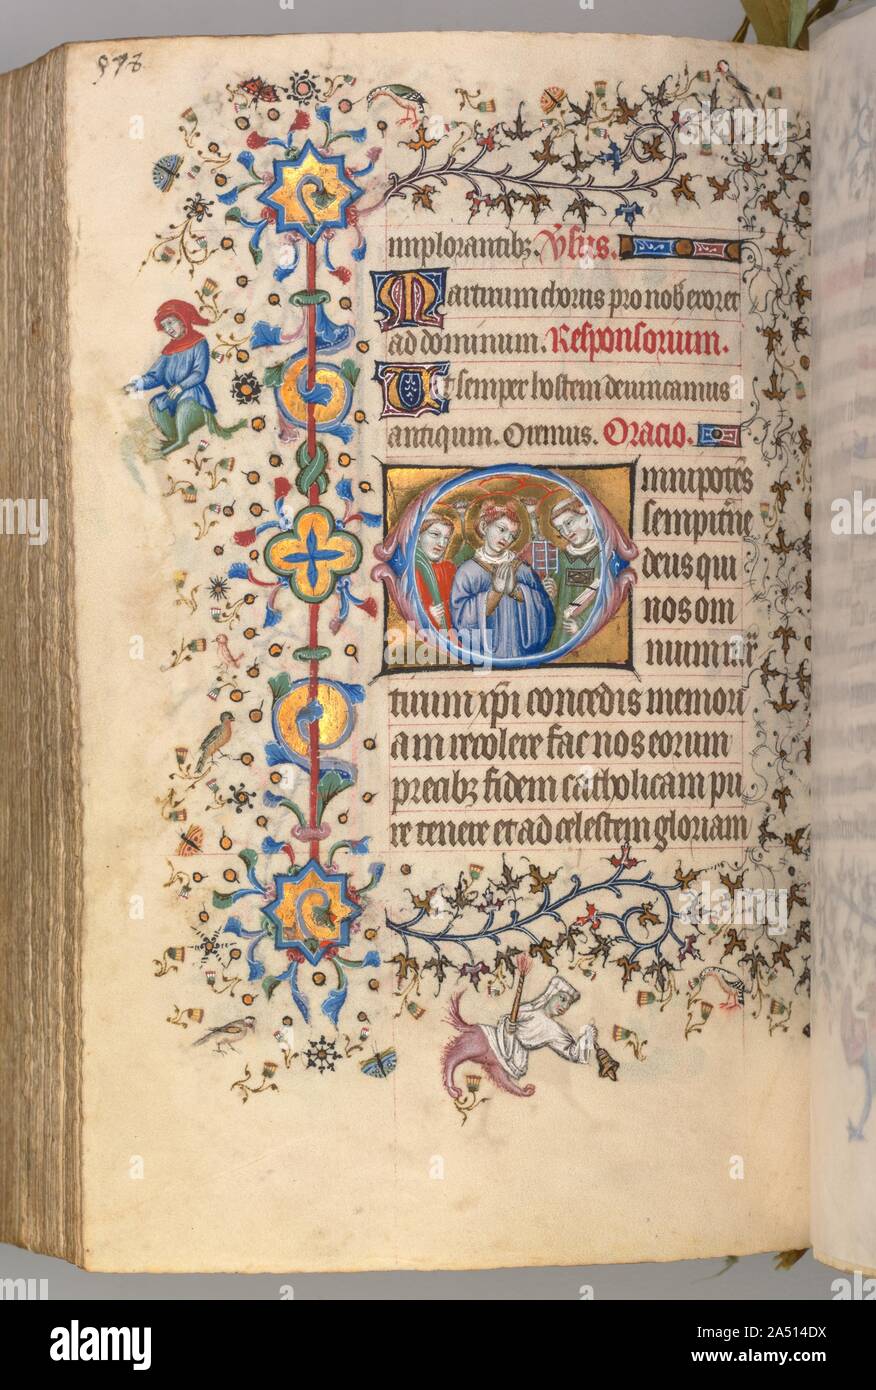 573
implorantibꝫ. Vsus.
Martirum chorus pro nob̾ exoret
ad dominum. Responsorium.
Ut semper hostem deuincamus
antiqum. Oremus. Oracio.
Omnipotẽs
sempitñe
deus qui
nos om
nium mr̃
tirum xp̃i concedis memori
am recolere fac nos eorum
precibꝫ fidem catholicam pu
re tenere et ad celestem gloriam
alamy
Image ID: 2A514DX
www.alamy.com